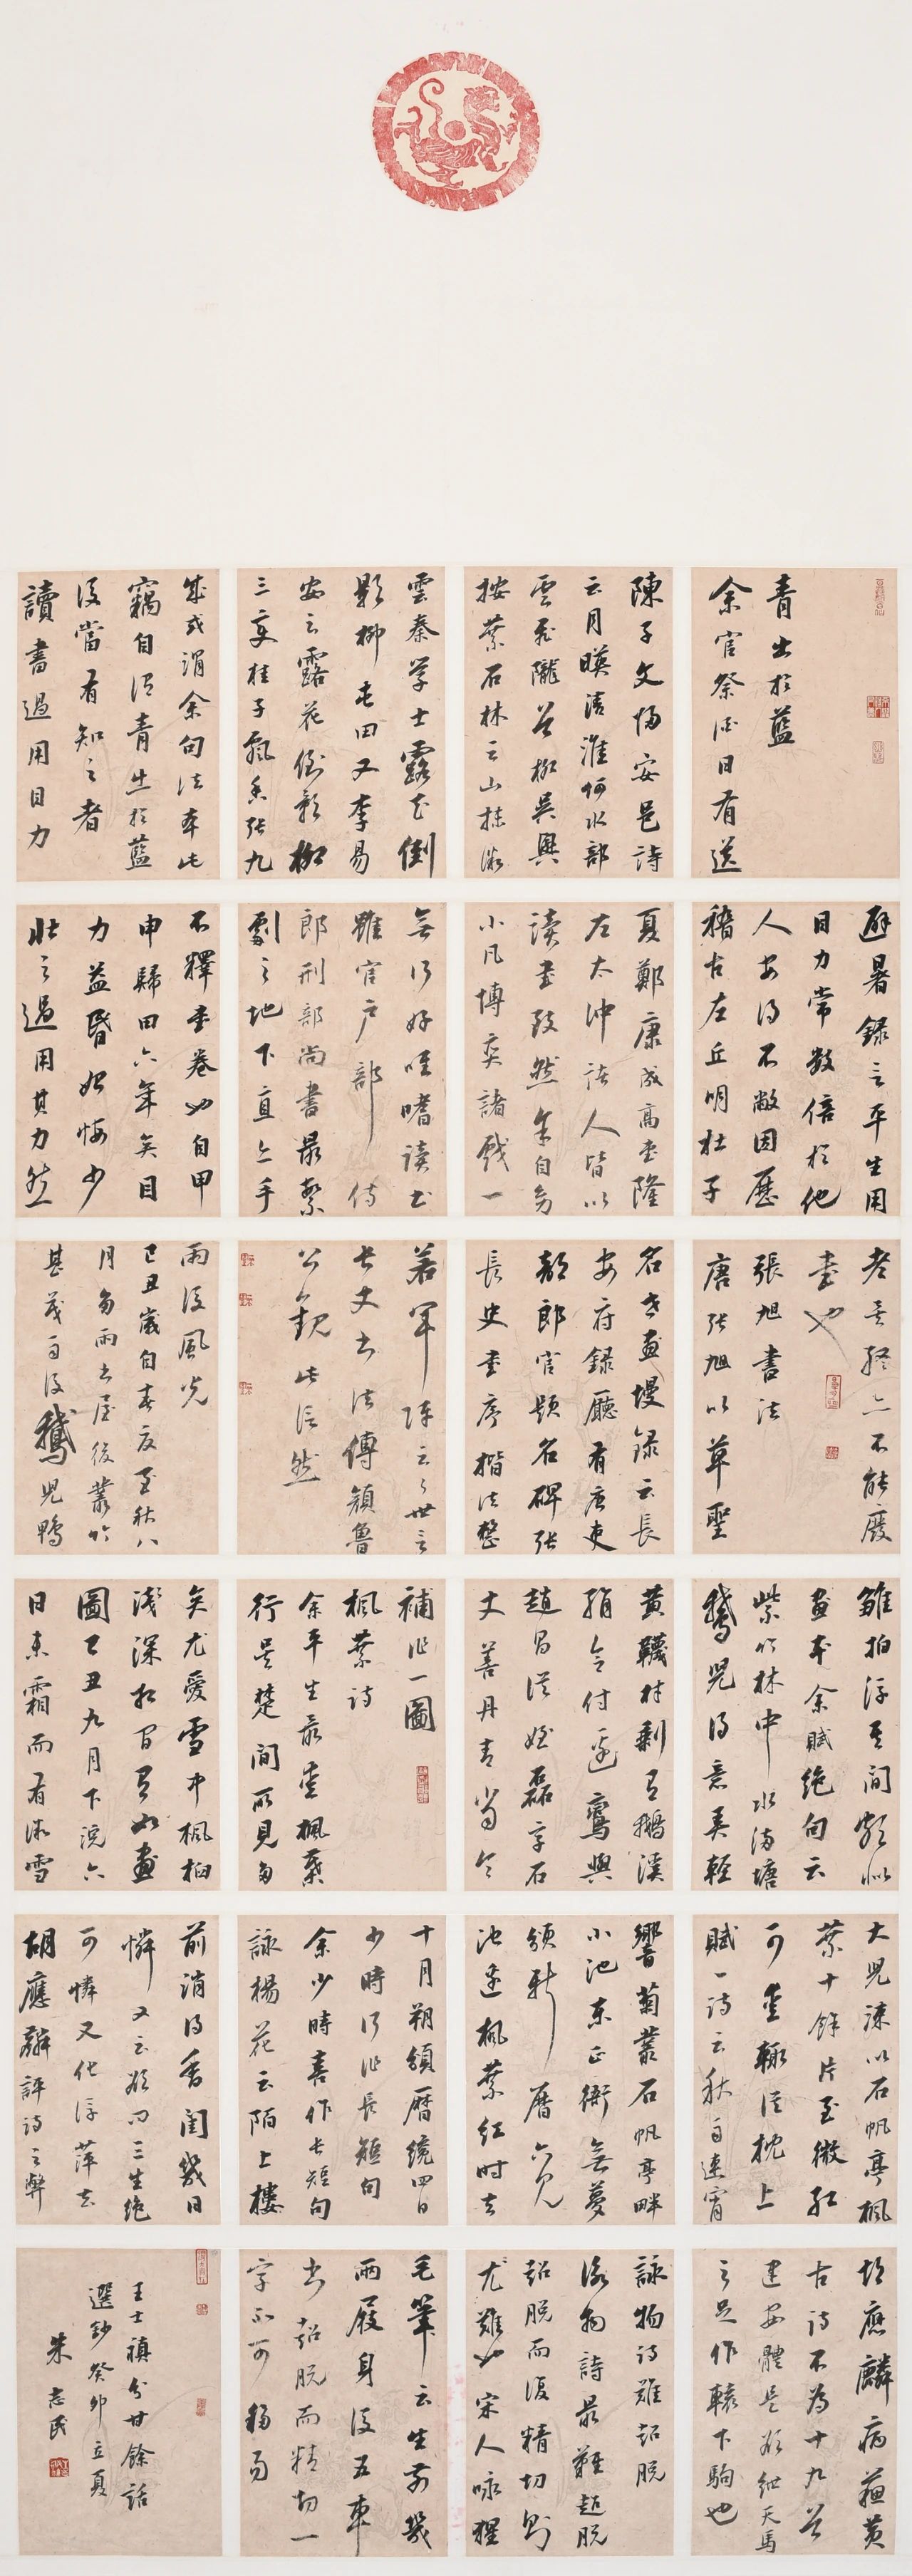 青出於藍
余官祭酒日有送
陳子文歸安邑詩
云月映清淮何水部
雲飛隴首柳吳興
按葉石林云山抹微
雲秦学士露花倒
影柳屯田又李易
安云露花倒影柳
三変桂子飄香張九
成或謂余句法本此
竊自謂青出於藍
後當有知之者
讀書過用目力
避暑録云平生用
目力常數倍於他
人安得不敝因歷
稽古左丘明杜子
夏鄭康成高堂隆
左太沖諸人皆以
读書致然余自幼
小凡博弈諸戲一
無所好唯嗜读书
雖官户部侍
郎刑部尚書最繁
劇之地下直亦手
不釋書卷也自甲
申歸田六年矣目
力益昏始悔少
壯之過用其力然
老矣終亦不能廢
書也
張旭書法
唐張旭以草聖
名世畫墁録云長
安府録廳有唐吏
部郎官題名碑張
長史書序楷法整
若軍陣云云世言
長史书法傳顔魯
公觀此信然
雨後風光
己丑歲自春夜至秋八
月多雨书屋後叢竹
甚茂雨後鵝兒鴨
雛拍浮其間頗似
畫本余賦绝句云
紫竹林中水满塘
鵝兒得意弄輕
黄韉材剩有鵝溪
絹合付邊鸞與
趙昌從姪磊字石
丈善丹青當令
補作一圖
楓葉詩
余平生最愛楓葉
行吴楚間所見多
矣尤愛雪中楓柏
淺深相間有如畫
圖己丑九月下浣六
日東霜而有微雪
大兒涑以石帆亭楓
葉十餘片至微紅
可愛輒從枕上
賦一詩云秋雨連宵
響菊叢石帆亭畔
小池東正衙無夢
頒新曆六見
池邊楓葉红时去
十月朔頒曆纔四日
少時所作長短句
余少時喜作長短句
詠楊花云陌上樓
前消得香閨幾日
憐又云欲問三生绝
可憐又化浮萍去
胡應麟評詩之弊
胡應麟病蘇黄
古詩不為十九首
建安體是欲絏天馬
之足作轅下駒也
詠物詩難超脱
詠物詩最難超脱
超脱而復精切則
尤難也宋人咏猩
毛筆云生前幾
兩屐身後五車
书超脱而精切一
字不可移易
王士禛分甘餘話
選鈔癸卯立夏
朱志民